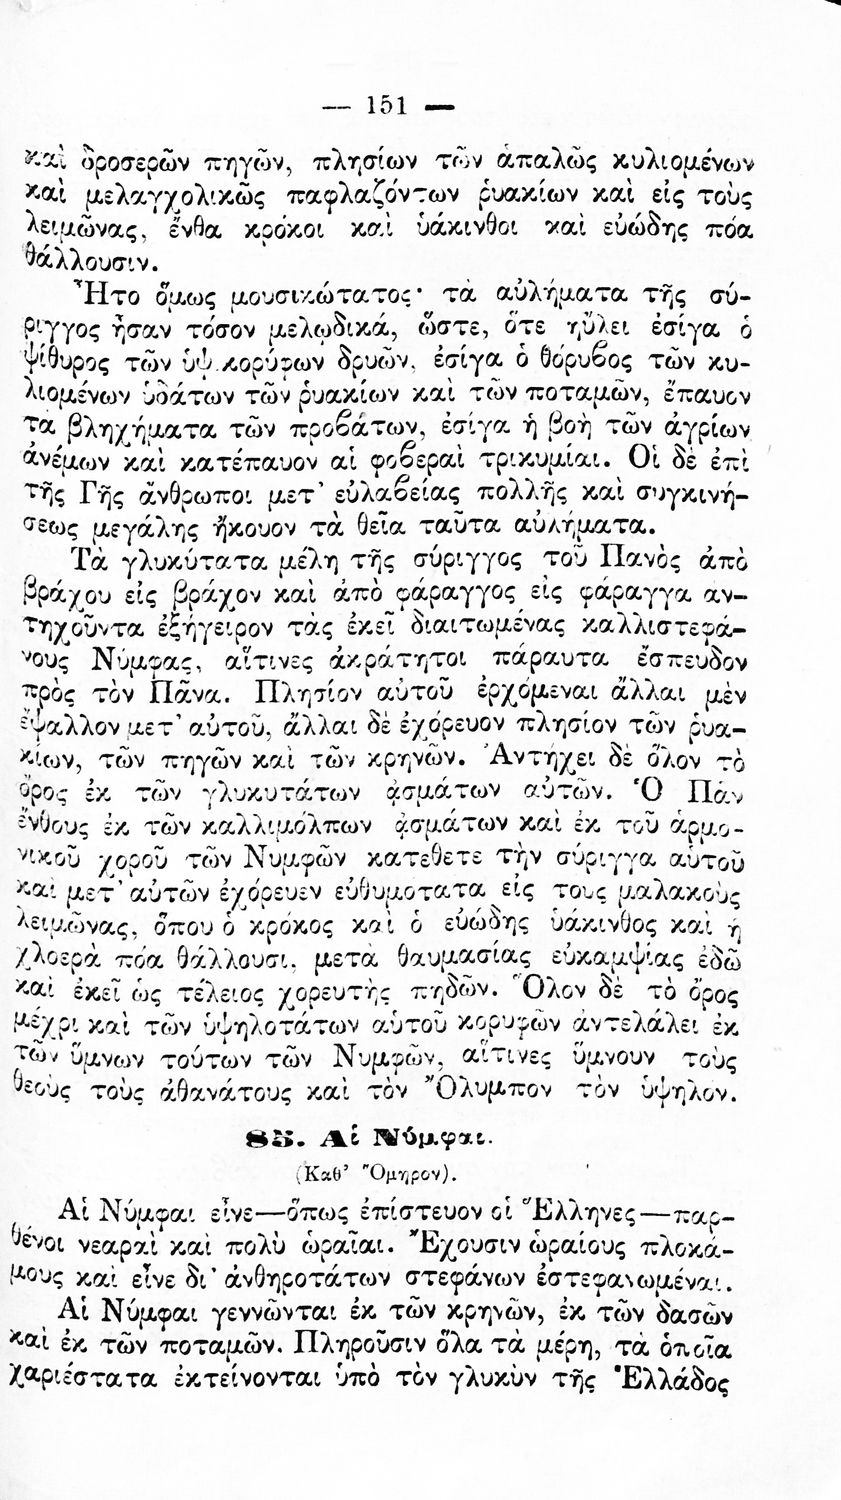 — 151 —
καὶ δροσερῶν πηγῶν, πλησίων τῶν ἁπαλῶς κυλιομένων
καὶ μελαγχολικῶς παφλαζόντων ῥυακίων καὶ εἰς τοὺς
λειμῶνας, ἔνθα κρόκοι καὶ ὑάκινθοι καὶ εὐώδης πόα
θάλλουσιν.
Ἦτο ὅμως μουσικώτατος· τὰ αὐλήματα τῆς σύ-
ριγγος ἦσαν τόσον μελῳδικά, ὥστε, ὅτε ηὔλει ἐσίγα ὁ
ψίθυρος τῶν ὑψικορύφων δρυῶν, ἐσίγα ὁ θόρυβος τῶν κυ-
λιομένων ὑδάτων τῶν ῥυακίων καὶ τῶν ποταμῶν, ἔπαυον
τα βληχήματα τῶν προβάτων, ἐσίγα ἡ βοὴ τῶν ἀγρίων
ἀνέμων καὶ κατέπαυον αἱ φοβεραὶ τρικυμίαι. Οἱ δὲ ἐπὶ
τῆς Γῆς ἄνθρωποι μετ' εὐλαβείας πολλῆς καὶ συγκινή-
σεως μεγάλης ἤκουον τὰ θεῖα ταῦτα αὐλήματα.
Τὰ γλυκύτατα μέλη τῆς σύριγγος τοῦ Πανὸς ἀπὸ
βράχου εἰς βράχον καὶ ἀπὸ φάραγγος εἰς φάραγγα αν-
τηχοῦντα ἐξήγειρον τὰς ἐκεῖ διαιτωμένας καλλιστεφά-
νους Νύμφας, αἵτινες ἀκράτητοι πάραυτα ἔσπευδον
πρὸς τὸν Πᾶνα. Πλησίον αὐτοῦ ἐρχόμεναι ἄλλαι μὲν
ἔψαλλον μετ' αὐτοῦ, ἄλλαι δὲ ἐχόρευον πλησίον τῶν ῥυα-
κίων, τῶν πηγῶν καὶ τῶν κρηνῶν. Ἀντήχει δὲ ὅλον τὸ
ὄρος ἐκ τῶν γλυκυτάτων ᾀσμάτων αὐτῶν. Ὁ Πὰν
ἔνθους ἐκ τῶν καλλιμόλπων ᾀσμάτων καὶ ἐκ τοῦ ἁρμο-
νικοῦ χοροῦ τῶν Νυμφῶν κατεθετε τὴν σύριγγα αὑτοῦ
καὶ μετ' αὐτῶν ἐχόρευεν εὐθυμοτατα εἰς τους μαλακοὺς
λειμῶνας, ὅπου ὁ κρόκος καὶ ὁ εὐώδης ὑάκινθος καὶ ἡ
χλοερὰ πόα θάλλουσι, μετὰ θαυμασίας εὐκαμψίας ἐδῶ
καὶ ἐκεῖ ὡς τέλειος χορευτὴς πηδῶν. Ὅλον δὲ τὸ ὄρος
μέχρι καὶ τῶν ὑψηλοτάτων αὑτοῦ κορυφῶν ἀντελάλει ἐκ
τῶν ὕμνων τούτων τῶν Νυμφῶν, αἵτινες ὕμνουν τοὺς
θεοὺς τοὺς ἀθανάτους καὶ τὸν Ὄλυμπον τὸν ὑψηλόν.
85. Αἱ Νύμφαι.
(Καθ' Ὅμηρον).
Αἱ Νύμφαι εἶνε—ὅπως ἐπίστευον οἱ Ἕλληνες—παρ-
θένοι νεαραὶ καὶ πολὺ ὡραῖαι. Ἔχουσιν ὡραίους πλοκά-
μους καὶ εἶνε δι' ἀνθηροτάτων στεφάνων ἐστεφανωμέναι.
Αἱ Νύμφαι γεννῶνται ἐκ τῶν κρηνῶν, ἐκ τῶν δασῶν
καὶ ἐκ τῶν ποταμῶν. Πληροῦσιν ὅλα τὰ μέρη, τὰ ὁποῖα
χαριέστατα ἐκτείνονται ὑπὸ τὸν γλυκὺν τῆς Ἑλλάδος